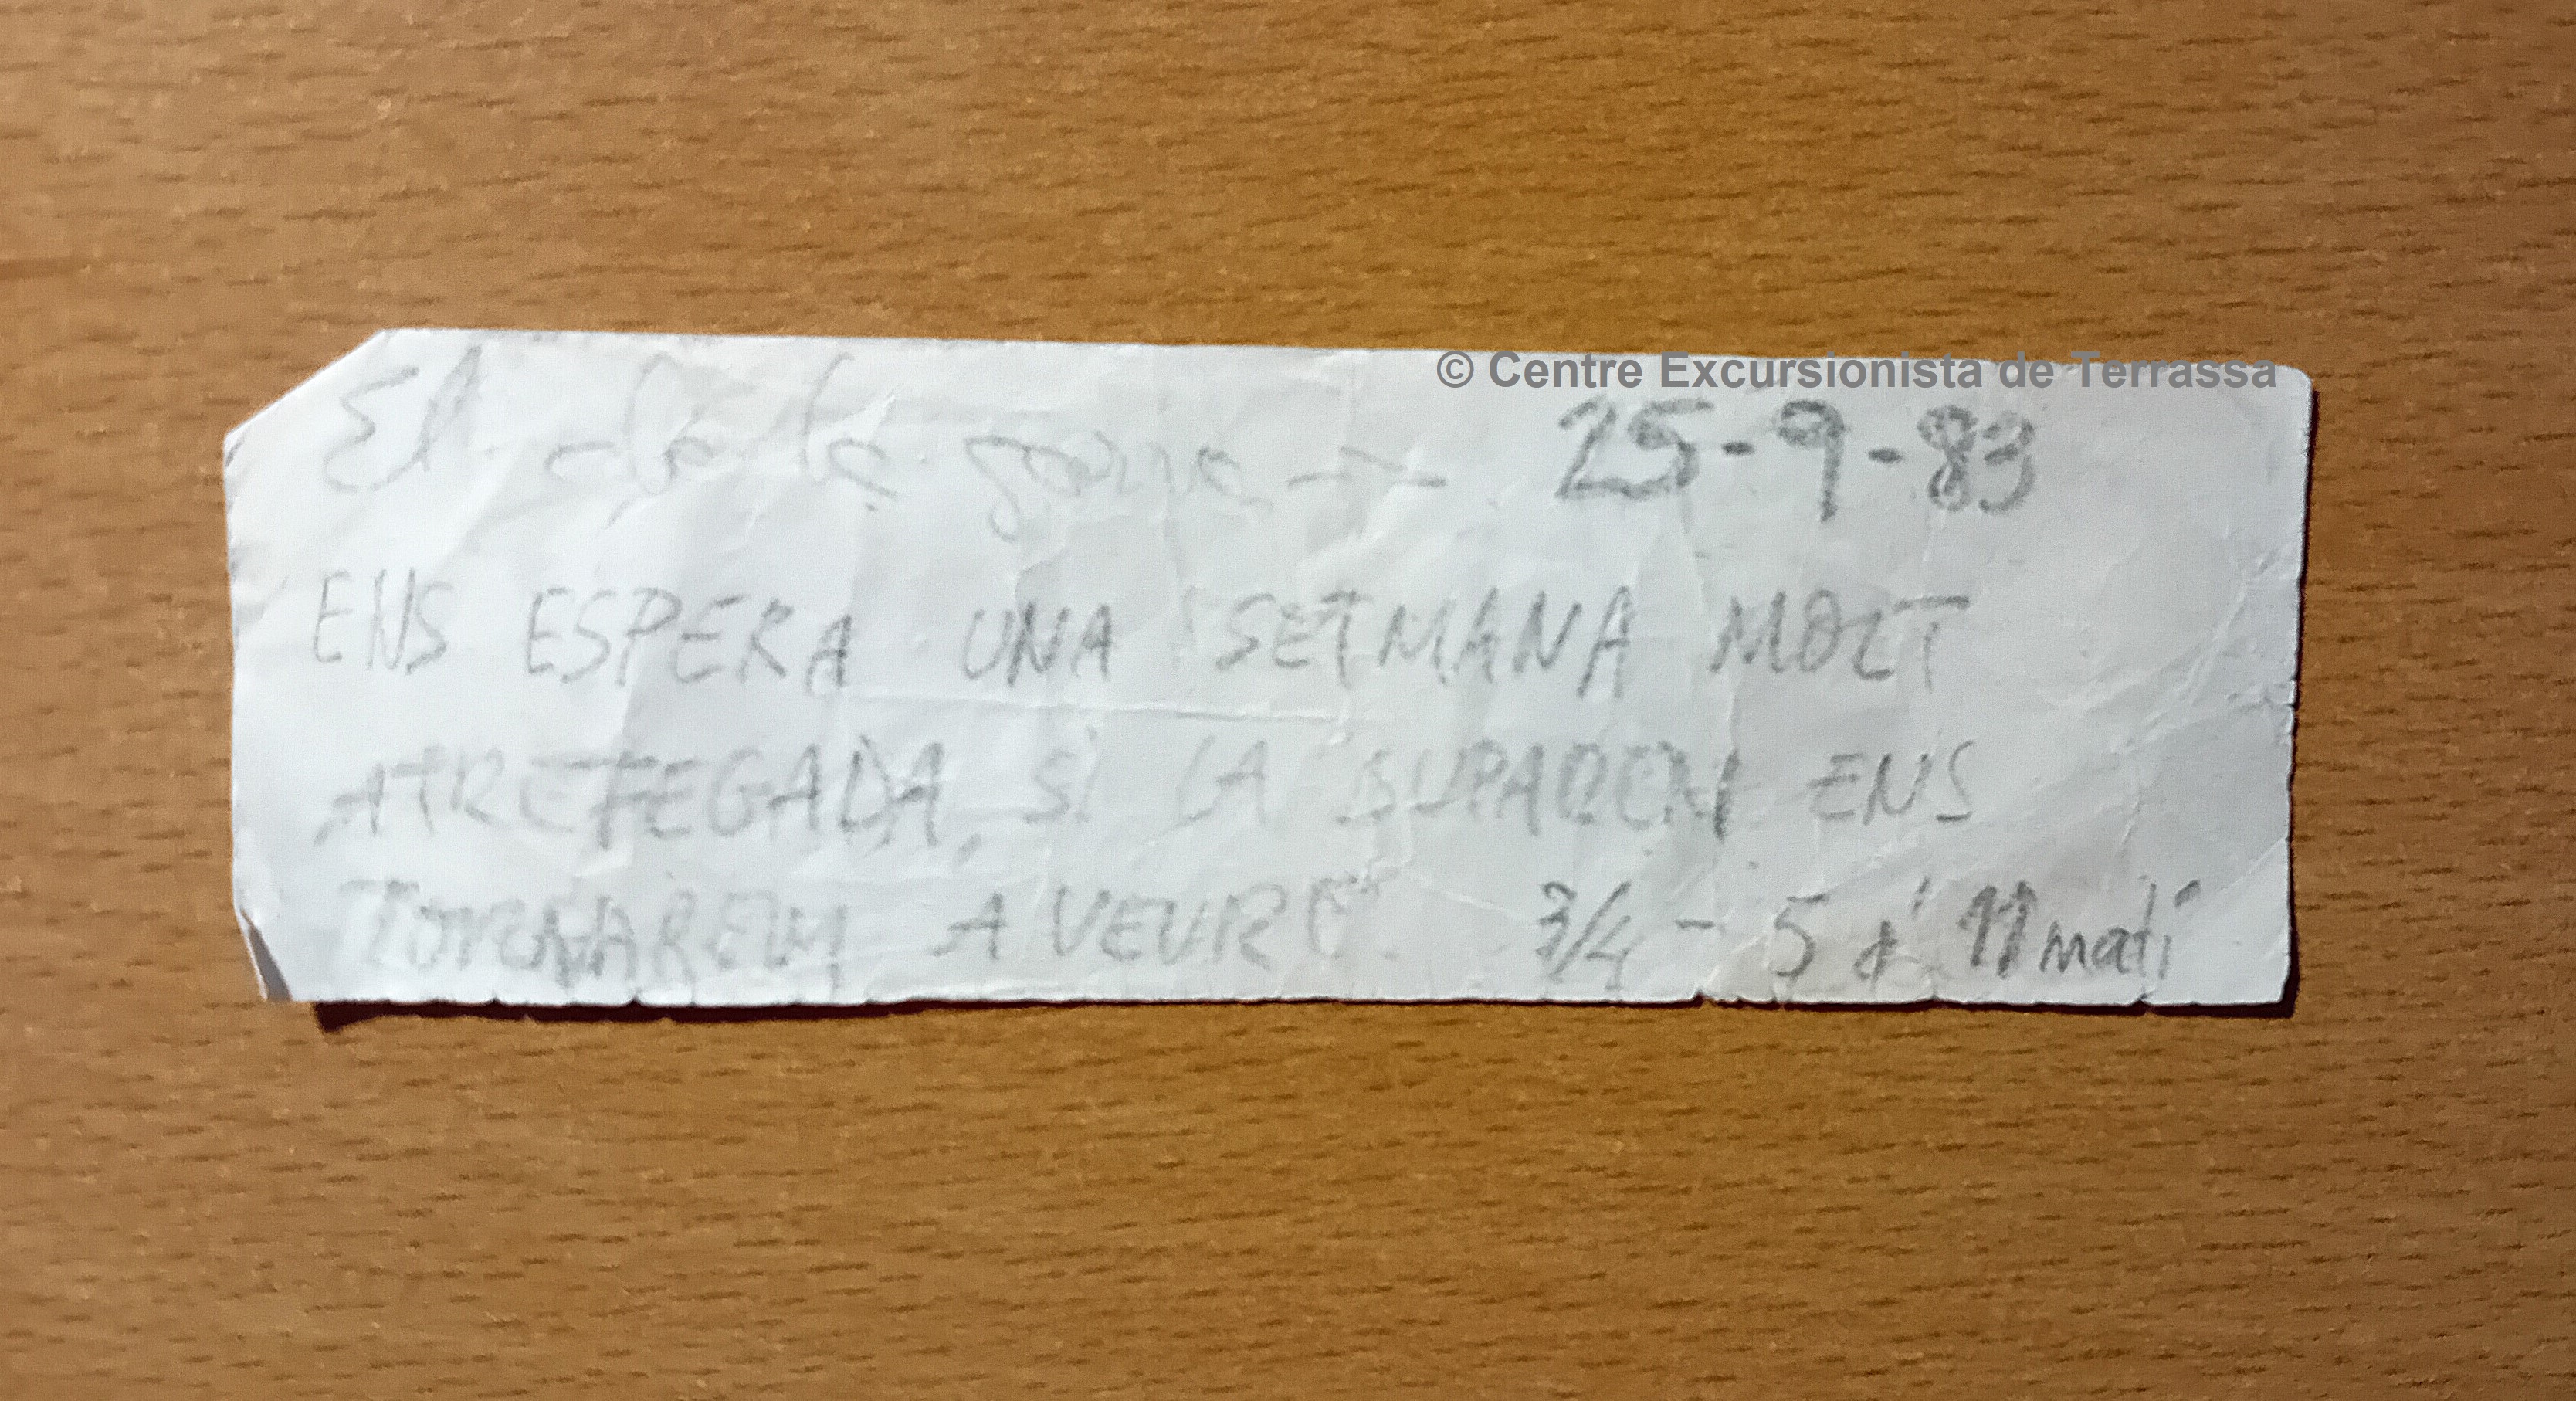 © Centre Excursionista de Terrassa
El de la 25-9-83
ENS ESPERA UNA SETMANA MOLT
ATREFEGADA, SI LA SUPAREM ENS
TORNAREM A VEURE 3/4 - 5 d' 11 matí